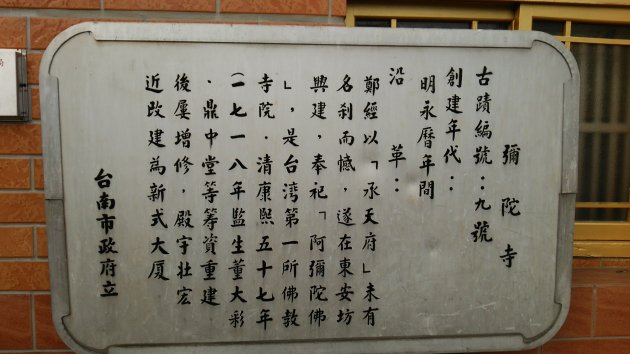 彌陀寺
古蹟編號：九號
創建年代：
明永曆年間
沿革：
鄭經以「承天府」未有
名刹而憾，遂在東安坊
興建，奉祀「阿彌陀佛
」，是台灣第一所佛教
寺院．清康熙五十七年
(一七一八年監生董大彩
．鼎中堂等籌資重建
後屢增修，殿宇壯宏
近改建為新式大厦
台南市政府立